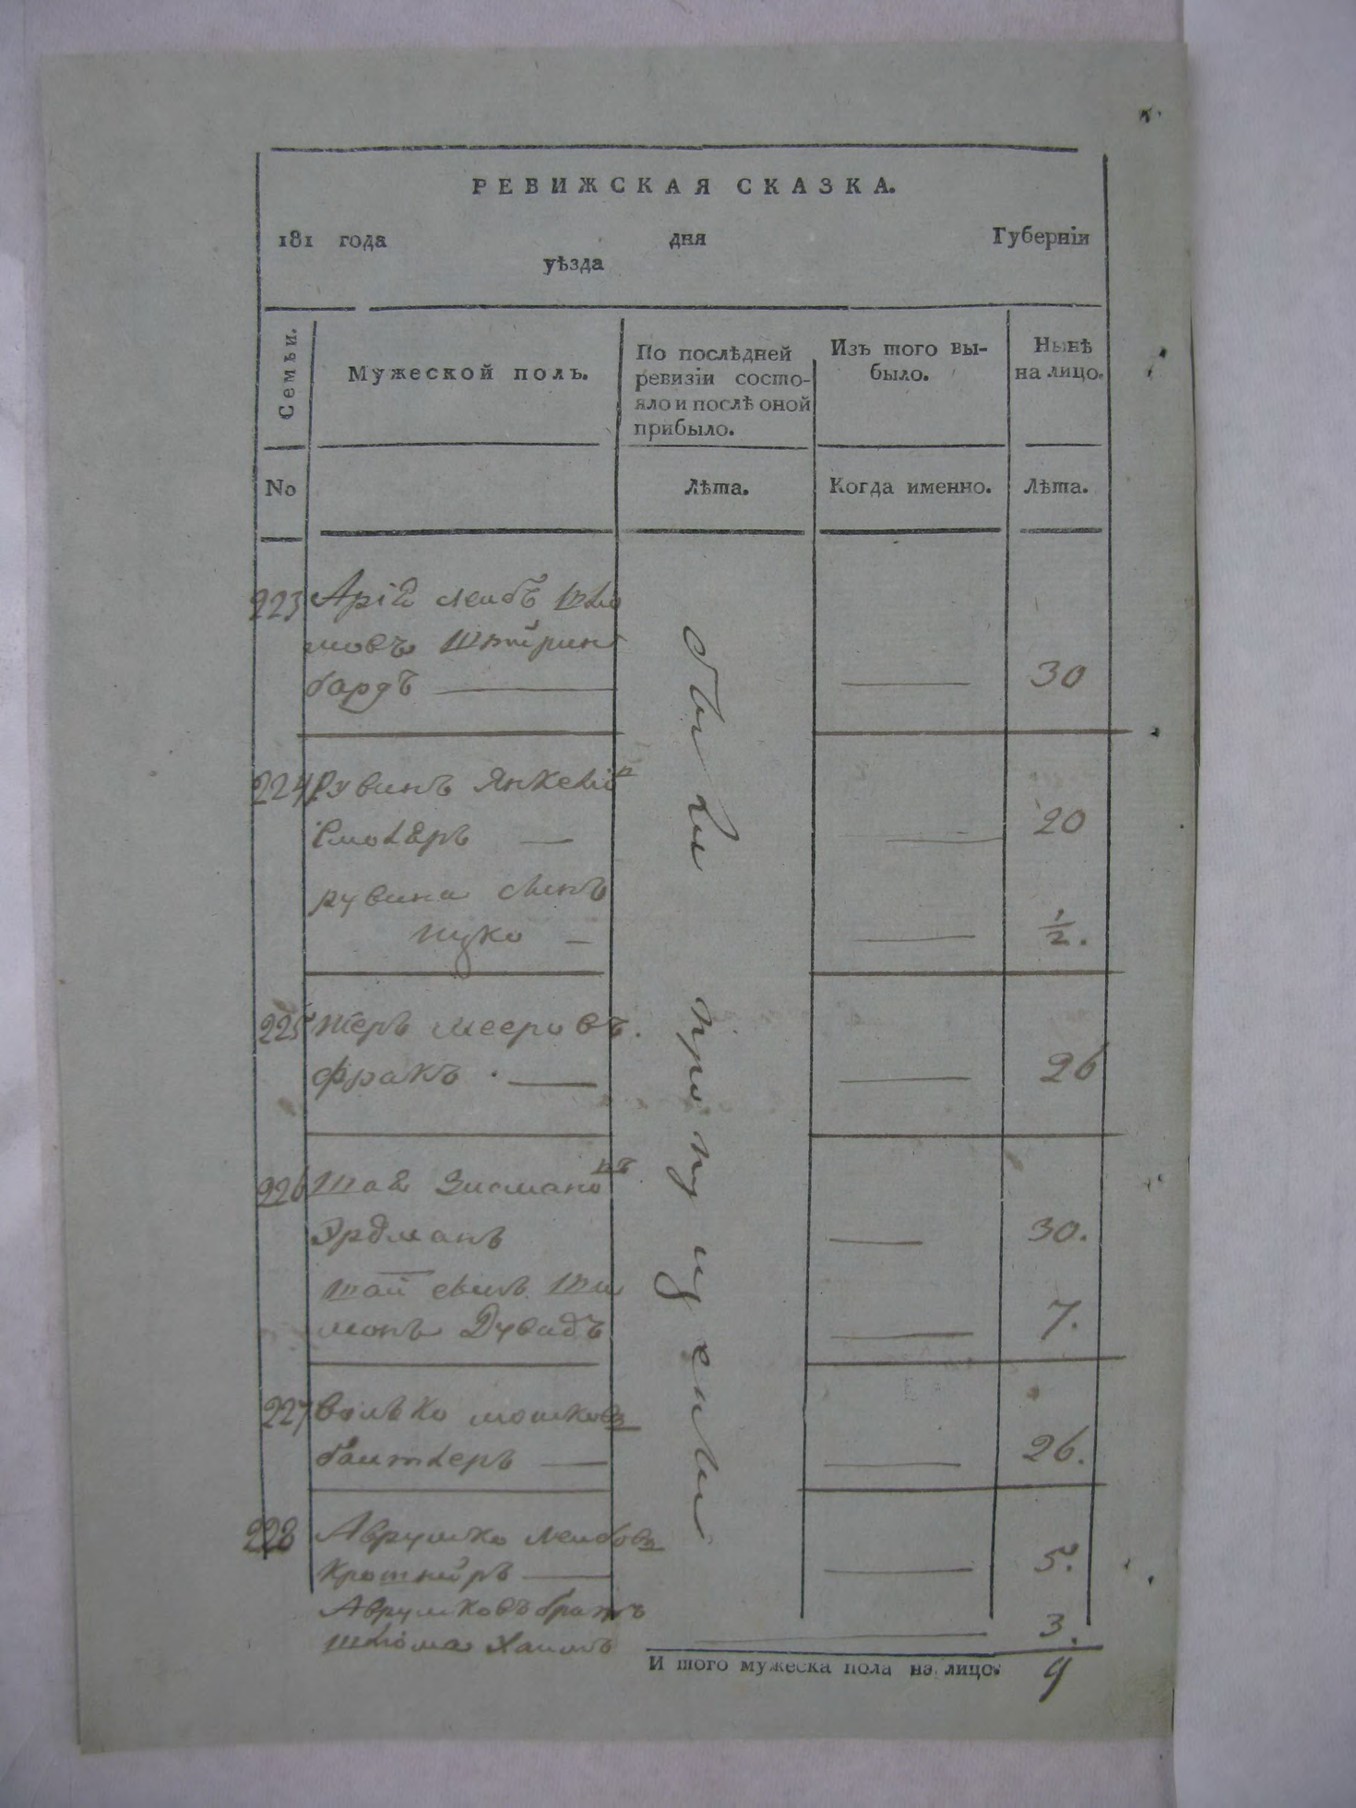 РЕВИЖСКАЯ СКАЗКА.
181 года дня Губерніи
уѣзда
Семьи.
Мужеской полъ.
По послѣдней ревизіи состояло и послѣ оной прибыло.
Изъ того выбыло.
Нынѣ на лицо.
No
Лѣта.
Когда именно.
Лѣта.
были пропущены
223 Арій Лейбъ Шло
мовъ
бардъ 30
224 Рувинъ Янкелio
20
рувина сынъ
Ицко 1/2.
225 Мееровъ.
Фракъ 26
226 Шаё Зисмановъ
Эрдманъ 30.
шаи сынъ Ши
монъ Дувидъ 7.
227 Волько мошковъ
26.
228 Аврумко Лейбовъ
5.
Аврумковъ братъ
шлiома Хаимъ 3.
И того мужеска пола на лицо. 9